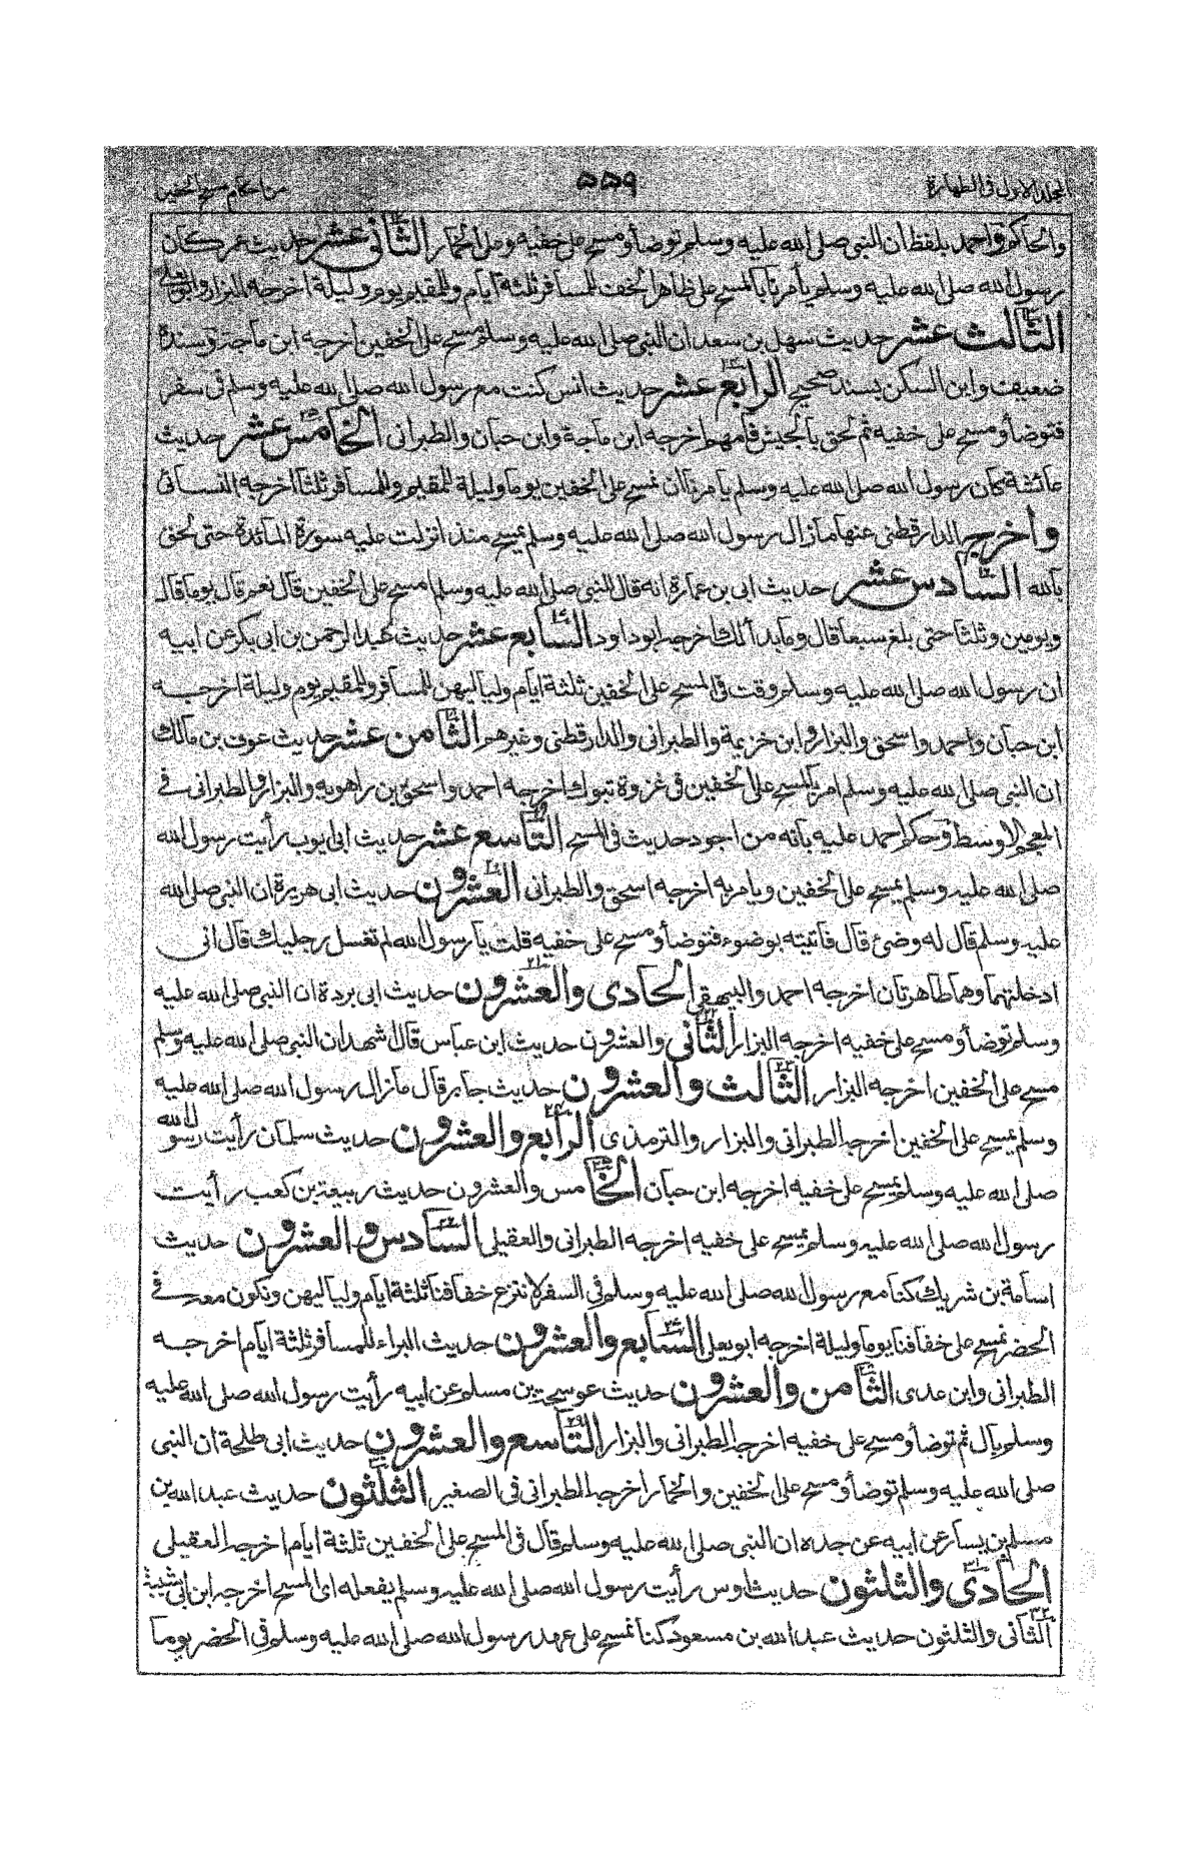 المجلد الاول فى الطهارة ٥٥٩ من احكام مسح الخفين
والحاكم واحمد بلفظ ان النبى صلى الله عليه وسلم توضأ ومسح على خفيه وعلى الخمار الثانى عشر حديث عمر كان
رسول الله صلى الله عليه وسلم يأمرنا بالمسح على ظاهر الخف للمسافر ثلثة ايام وللمقيم يوم وليلة اخرجه البزار وابو يعلى
الثالث عشر حديث سهل بن سعد ان النبى صلى الله عليه وسلم مسح على الخفين اخرجه ابن ماجة وسنده
ضعيف وابن السكن بسند صحيح الرابع عشر حديث انس كنت مع رسول الله صلى الله عليه وسلم فى سفر
فتوضأ ومسح على خفيه ثم لحق بالجيش فأمهم اخرجه ابن ماجة وابن حبان والطبرانى الخامس عشر حديث
عائشة كان رسول الله صلى الله عليه وسلم يامرنا ان نمسح على الخفين يوما وليلة للمقيم وللمسافر ثلثا اخرجه النسائى
واخرج الدارقطنى عنها ما زال رسول الله صلى الله عليه وسلم يمسح منذ انزلت عليه سورة المائدة حتى لحق
بالله السادس عشر حديث ابى بن عمارة انه قال للنبى صلى الله عليه وسلم امسح على الخفين قال نعم قال يوما قال
ويومين وثلثا حتى بلغ سبعا قال وما بدا لك اخرجه ابو داود السابع عشر حديث عبد الرحمن بن ابى بكر عن ابيه
ان رسول الله صلى الله عليه وسلم وقت فى المسح على الخفين ثلثة ايام ولياليهن للمسافر وللمقيم يوم وليلة اخرجه
ابن حبان واحمد واسحق والبزار وابن خزيمة والطبرانى والدارقطنى وغيرهم الثامن عشر حديث عوف بن مالك
ان النبى صلى الله عليه وسلم امر بالمسح على الخفين فى غزوة تبوك اخرجه احمد واسحق بن راهويه والبزار والطبرانى فى
المعجم الاوسط وحكم احمد عليه بانه من اجود حديث فى المسح التاسع عشر حديث ابى ايوب رأيت رسول الله
صلى الله عليه وسلم يمسح على الخفين ويامر به اخرجه اسحق والطبرانى العشرون حديث ابى هريرة ان النبى صلى الله
عليه وسلم قال له وضئ قال فاتيته بوضوء فتوضأ ومسح على خفيه قلت يا رسول الله لم تغسل رجليك قال انى
ادخلتهما وهما طاهرتان اخرجه احمد والبيهقى الحادى والعشرون حديث ابى بردة ان النبى صلى الله عليه
وسلم توضأ ومسح على خفيه اخرجه البزار الثانى والعشرون حديث ابن عباس قال اشهد ان النبى صلى الله عليه وسلم
مسح على الخفين اخرجه البزار الثالث والعشرون حديث جابر قال ما زال رسول الله صلى الله عليه
وسلم يمسح على الخفين اخرجه الطبرانى والبزار والترمذى الرابع والعشرون حديث سلمان رأيت رسول الله
صلى الله عليه وسلم يمسح على خفيه اخرجه ابن حبان الخامس والعشرون حديث ربيعة بن كعب رأيت
رسول الله صلى الله عليه وسلم يمسح على خفيه اخرجه الطبرانى والعقيلى السادس والعشرون حديث
اسامة بن شريك كنا مع رسول الله صلى الله عليه وسلم فى السفر لا ننزع خفافنا ثلثة ايام ولياليهن ونكون معه فى
الحضر نمسح على خفافنا يوما وليلة اخرجه ابو يعلى السابع والعشرون حديث البراء للمسافر ثلثة ايام اخرجه
الطبرانى وابن عدى الثامن والعشرون حديث عوسجة بن مسلم عن ابيه رأيت رسول الله صلى الله عليه
وسلم بال ثم توضأ ومسح على خفيه اخرجه الطبرانى والبزار التاسع والعشرون حديث ابى طلحة ان النبى
صلى الله عليه وسلم توضأ ومسح على الخفين والخمار اخرجه الطبرانى فى الصغير الثلثون حديث عبد الله بن
مسلم بن يسار عن ابيه عن جده ان النبى صلى الله عليه وسلم قال فى المسح على الخفين ثلثة ايام اخرجه العقيلى
الحادى والثلثون حديث اوس رأيت رسول الله صلى الله عليه وسلم يفعله اى المسح اخرجه ابن ابى شيبة
الثانى والثلثون حديث عبد الله بن مسعود كنا نمسح على عهد رسول الله صلى الله عليه وسلم فى الحضر يوما